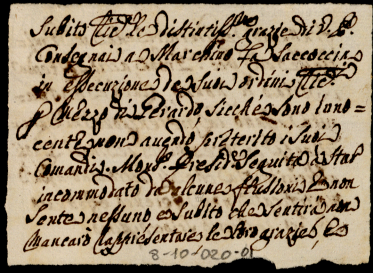 Subito che le distintiss.me grazie di V. S.
Consegnai a Marchino la Saccoccia
in essecuzione de suoi ordini
p mezzo di Gerardo Sicche sono inno=
cente non avendo preterito i suoi
Comandi. Mons.r Presid.e seguita a star
incommodato di alcune flussioni e non
sente nessuno e subito che sentirà non
mancarò rappresentare le sue grazie, e
8-10-020-01